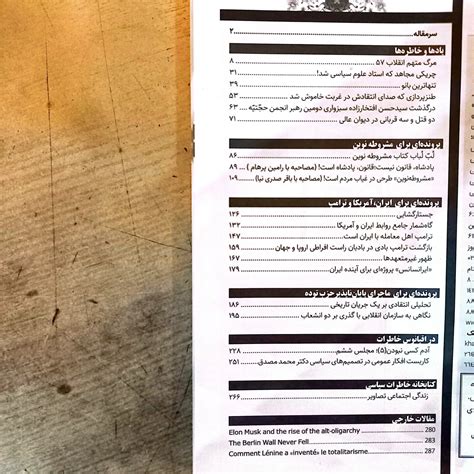 سرمقاله ۲
یادها و خاطره‌ها
مرگ متهم انقلاب ۵۷ ۸
چریکی مجاهد که استاد علوم سیاسی شد! ۳۱
تنهاترین بانو ۳۹
طنزپردازی که صدای انتقادش در غربت خاموش شد ۵۳
درگذشت سیدحسن افتخارزاده سبزواری دومین رهبر انجمن حجتیّه ۶۳
دو قتل و سه قربانی در دیوان عالی ۷۱
پرونده‌ای برای مشروطه نوین
لُبّ لُباب کتاب مشروطه نوین ۸۶
پادشاه، قانون نیست؛قانون، پادشاه است! (مصاحبه با رامین پرهام) ۸۹
«مشروطه‌نوین» طرحی در غیاب مردم است! (مصاحبه با باقر صدری نیا) ۱۰۹
پرونده‌ای برای ایران، آمریکا و ترامپ
جستارگشایی ۱۲۶
گاه‌شمار جامع روابط ایران و آمریکا ۱۳۲
ترامپ اهل معامله با ایران است ۱۴۷
بازگشت ترامپ بادی در بادبان راست افراطی اروپا و جهان ۱۵۹
ظهور غیرمتعهدها ۱۶۷
«ایرانسانس» پروژه‌ای برای آینده ایران ۱۷۹
پرونده‌ای برای ماجرای پایان‌ناپذیر حزب توده
تحلیلی انتقادی بر یک جریان تاریخی ۱۸۶
نگاهی به سازمان انقلابی با گذری بر دو انشعاب ۱۹۵
در اقیانوس خاطرات
آدم کسی نبودن(۵)؛ مجلس ششم ۲۲۸
کاربست افکار عمومی در تصمیم‌های سیاسی دکتر محمد مصدق ۲۵۱
کتابخانه خاطرات سیاسی
زندگی اجتماعی تصاویر ۲۶۶
مقالات خارجی
Elon Musk and the rise of the alt-oligarchy 280
The Berlin Wall Never Fell 283
Comment Lénine a «inventé» le totalitarisme 287